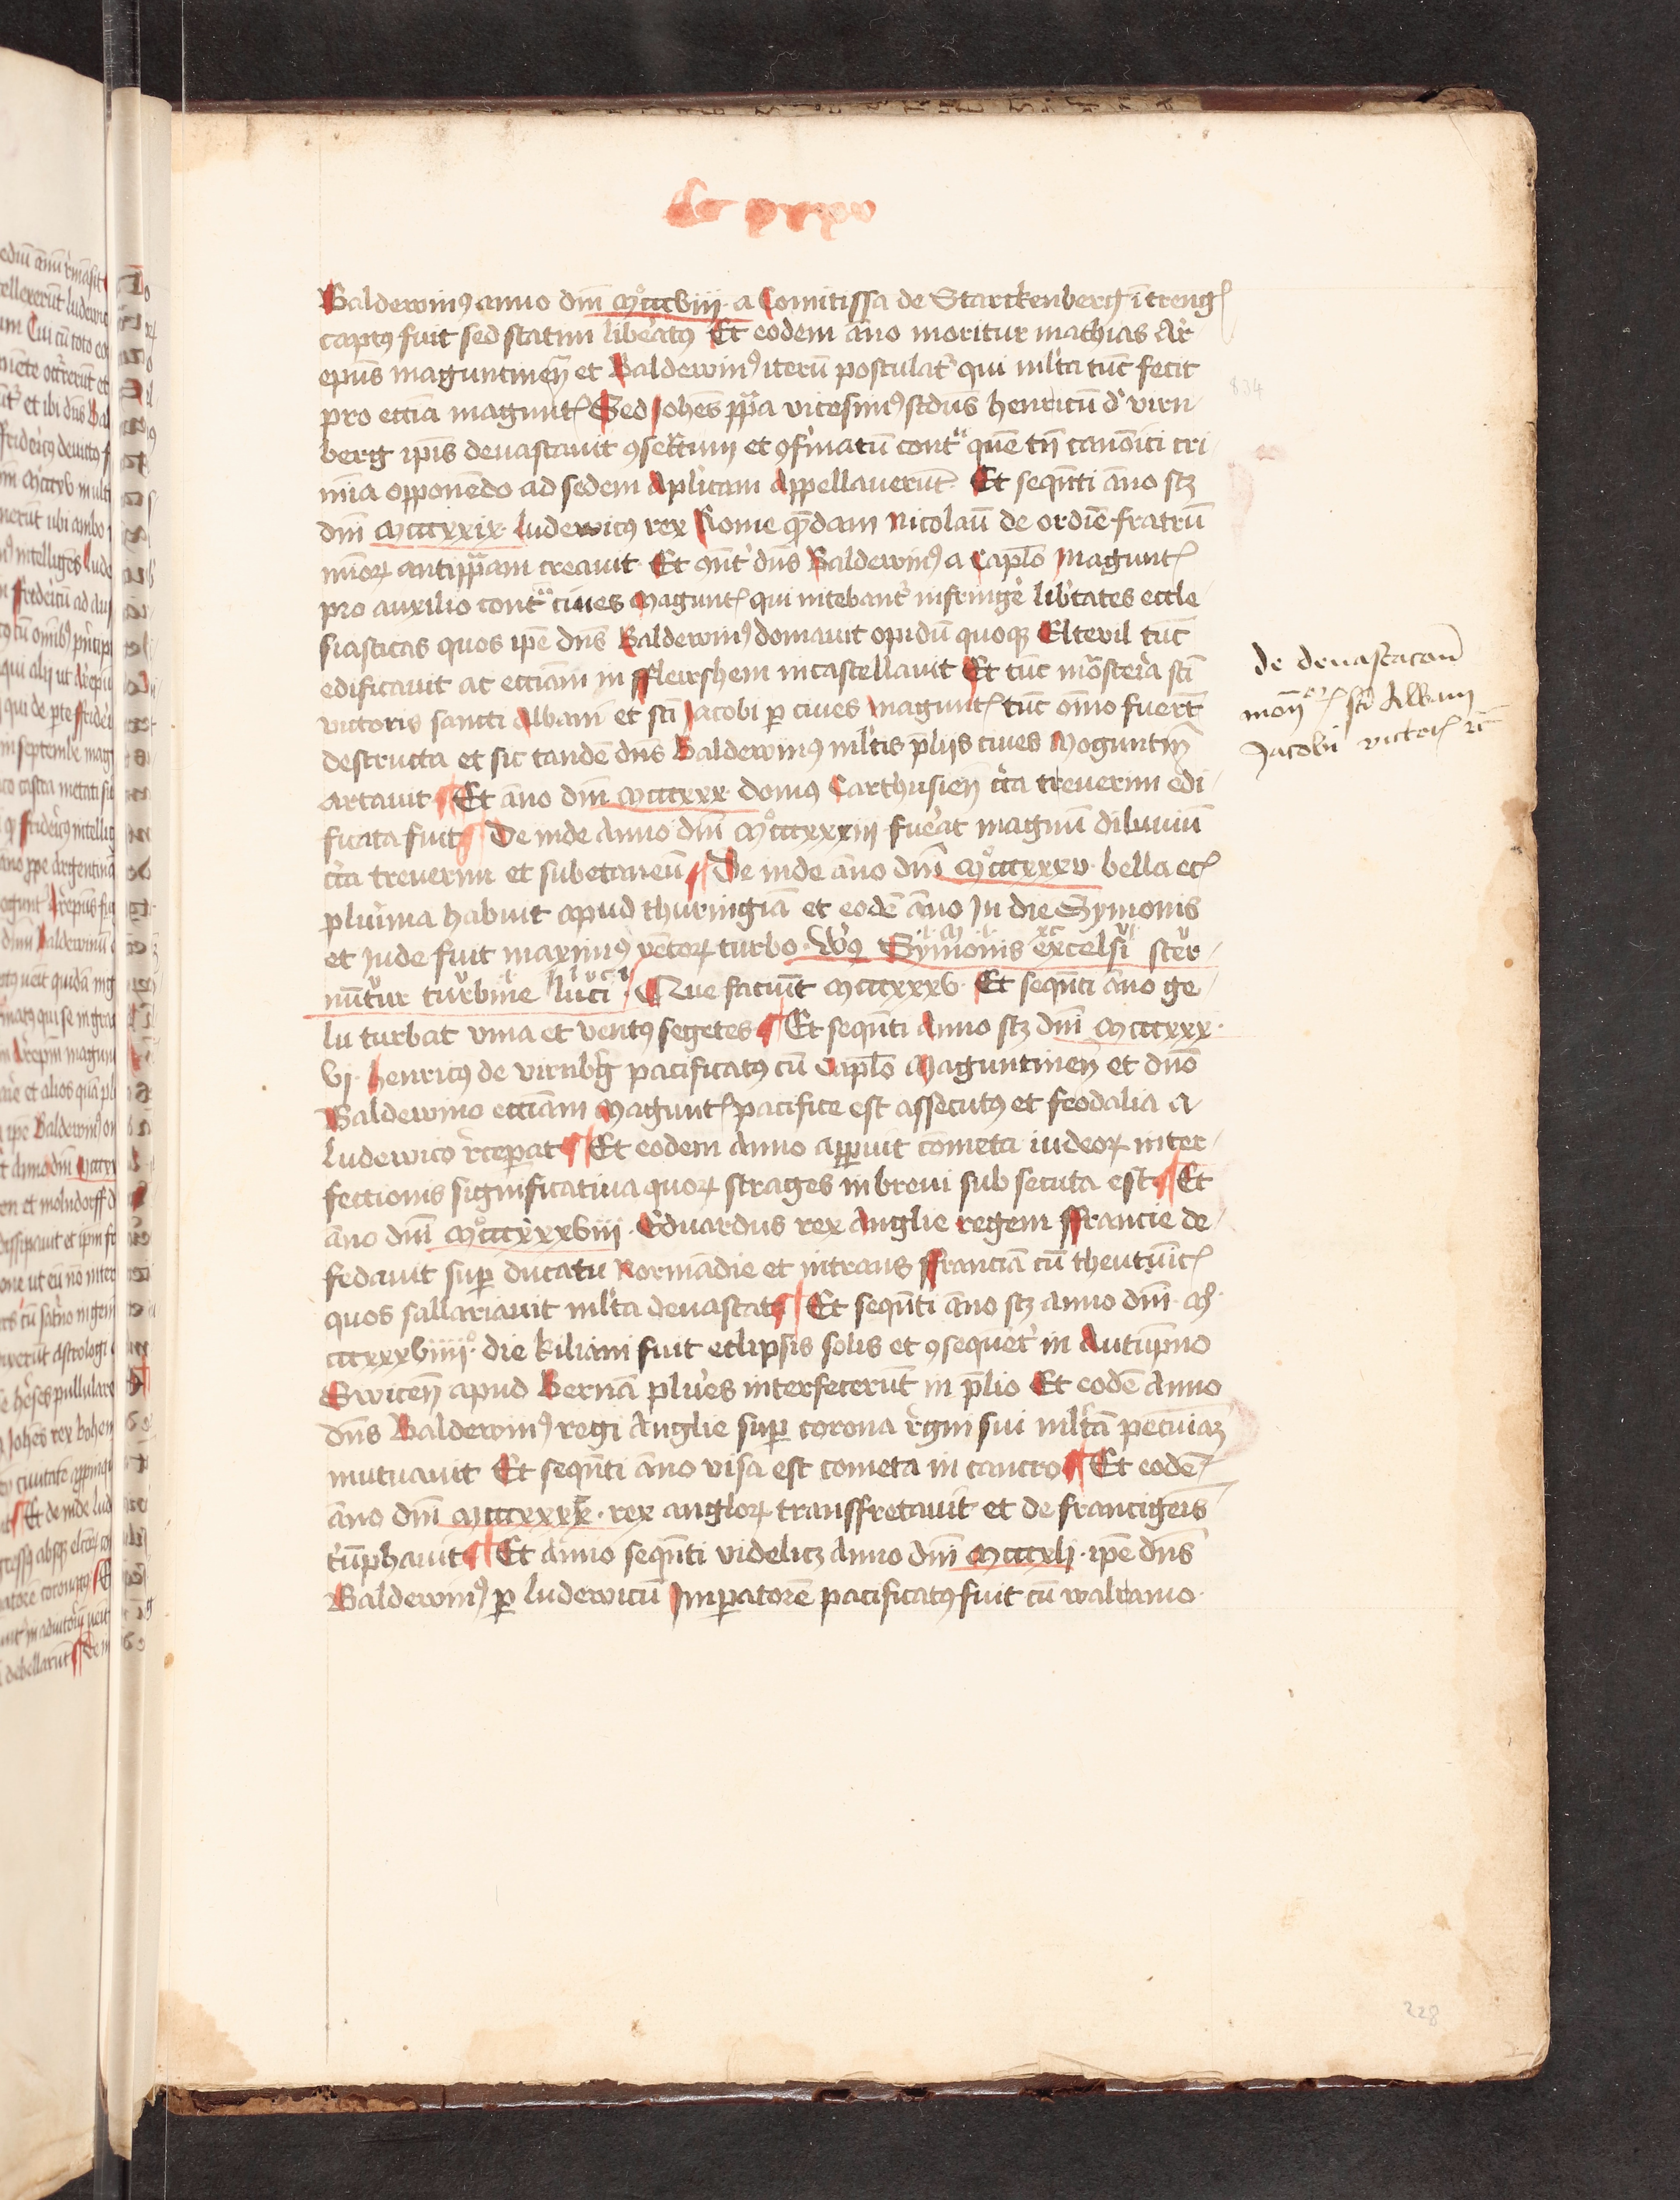 Baldewinꝰ anno dn̄i mͦcccviij · a Comitissa de Starckenberg ī trenḡ
captꝰ fuit sed statim libeatꝰ Et eodem āno moritur mathias Ar
ep̄us maguntineñ et Baldewinꝰ iterū postulat᷑ qui ml̕ta tūc fecit
pro eccīa magunt̄ Sed Joh̄es pp̄a vicesimꝰ scd̄us henricū d̕ virn
berg ip̄is devastavit ꝯsecͣtum et ꝯfirmatū contͣ quē tn̄ canōici cri
mīa opponēdo ad sedem Aplīcam Appellauerūt Et seqn̄ti āno scꝫ
dn̄i Mcccxxix· ludewicus rex Rome qͤdam Nicolaū de ordīe fratrū
minoꝝ antipp̄am creauit· Et ꝯn̄t᷑ dn̄s Baldewinꝰ a Capl̄o Magunt̄
pro auxilio contͣ ciues Magunt̄ qui nitebant᷑ infringe᷑ lib̕tates eccle
siasticas quos ip̄e dn̄s Baldewinꝰ domauit opidū quoqꝫ Eltevil tūc
edificauit ac eccīam in ffleirshem incastellavit Et tūc mōsteria sc̄i
victoris sancti Albani et sc̄i Jacobi ꝑ ciues Magunt̄ tūc om̄io fuert̄
destructa et sic tandē dn̄s Baldewinꝰ ml̕tis p̄lijs ciues Moguntin̄
artauit Et āno dn̄i Mcccxxx· domus Carthusieñ cͥca treuerim edi
ficata fuit De inde Anno dn̄i Mͦcccxxxiij fue᷑at magnū diluuiū
cͥca treuerim et subetaneū De inde āno dn̄i Mͦcccxxxv· bella etc̄
plurima habuit apud thuringiā et eodē āno In die Symonis
et Jude fuit maximꝰ ventoꝝ turbo· Vꝰs Symonis excelsi ster
nūtur turbine luci · Que faciūt Mcccxxxv· Et seqn̄ti āno ge
lu turbat vina et ventꝰ segetes Et seqn̄ti Anno scꝫ dn̄i Mcccxxx·
vj· henricꝰ de virnb̕g pacificatꝰ cū Capl̄o Maguntineñ et dn̄o
Baldewino eccīam Magunt̄ pacifice est assecutꝰ et feodalia a
ludewico r̕ceperat Et eodem Anno apparuit cometa iudeoꝝ inter
fectionis significatiua quoꝝ strages in breui sub secuta est Et
āno dn̄i Mͦcccxxxviij· Eduardus rex Anglie regem ffrancie de
fedauit suꝑ ducatu Normādie et intrans ffranciā cū theutūic̄
quos sallariauit ml̕ta deuastat Et seqn̄ti āno scꝫ anno dn̄i· Mͦ·
cccxxxviiijͦ· die kiliani fuit eclipsis solis et ꝯsequēt᷑ in Autūpno
Swiceñ apud Bernā plures interfecerūt in p̄lio Et eodē Anno
dn̄s Baldewinꝰ regi Anglie suꝑ corona r̕gni sui ml̕tā pecuiāꝫ
mutuauit Et seqn̄ti āno visa est cometa in cancro Et eodē
āno dn̄i Mcccxxxx· rex angloꝝ transffretauit et de francigeīs
triūphauit Et Anno seqn̄ti videlicꝫ Anno dn̄i Mcccxlj· ip̄e dn̄s
Baldewinꝰ ꝑ ludewicū Imperatorē pacificatꝰ fuit cū walramo·
de deuastacōn̄
mon̄ sc̄i Albani
Jacobi victor̄ ec̄
834
228